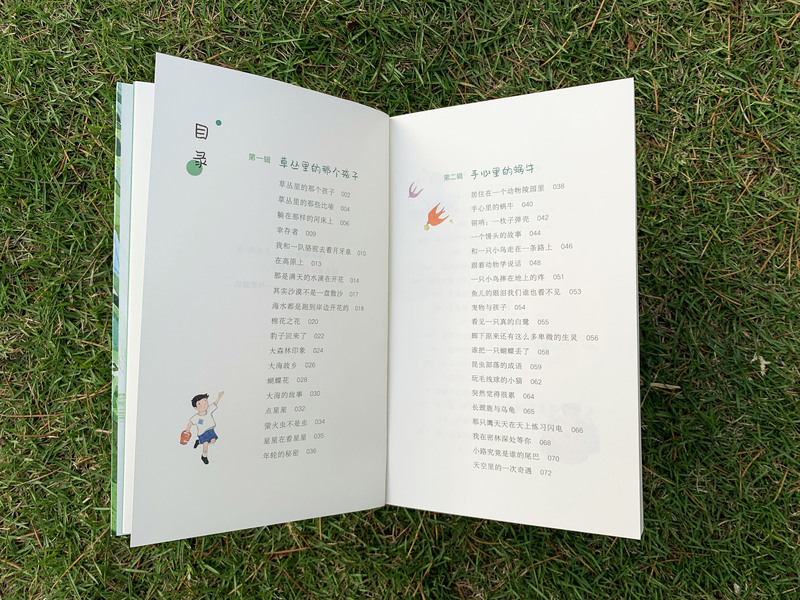 目录
第一辑 草丛里的那个孩子
草丛里的那个孩子 002
草丛里的那些比喻 004
躺在那样的河床上 006
幸存者 009
我和一队骆驼去看月牙泉 010
在高原上 013
那是满天的水滴在开花 014
其实沙漠不是一盘散沙 017
海水都是跑到岸边开花的 018
棉花之花 020
豹子回来了 022
大森林印象 024
大海故乡 026
蝴蝶花 028
大海的故事 030
点星星 032
萤火虫不是虫 034
星星在看星星 035
年轮的秘密 036
第二辑 手心里的蜗牛
居住在一个动物陵园里 038
手心里的蜗牛 040
铜哨：一枚子弹壳 042
一个馒头的故事 044
和一只小鸟走在一条路上 046
跟着动物学说话 048
一只小鸟摔在地上的疼 051
鱼儿的眼泪我们谁也看不见 053
宠物与孩子 054
看见一只真的白鹭 055
脚下原来还有这么多卑微的生灵 056
谁把一只蝴蝶丢了 058
昆虫部落的成语 059
玩毛线球的小猫 062
突然觉得很累 064
长颈鹿与乌龟 065
那只鹰天天在天上练习闪电 066
我在密林深处等你 068
小路究竟是谁的尾巴 070
天空里的一次奇遇 072